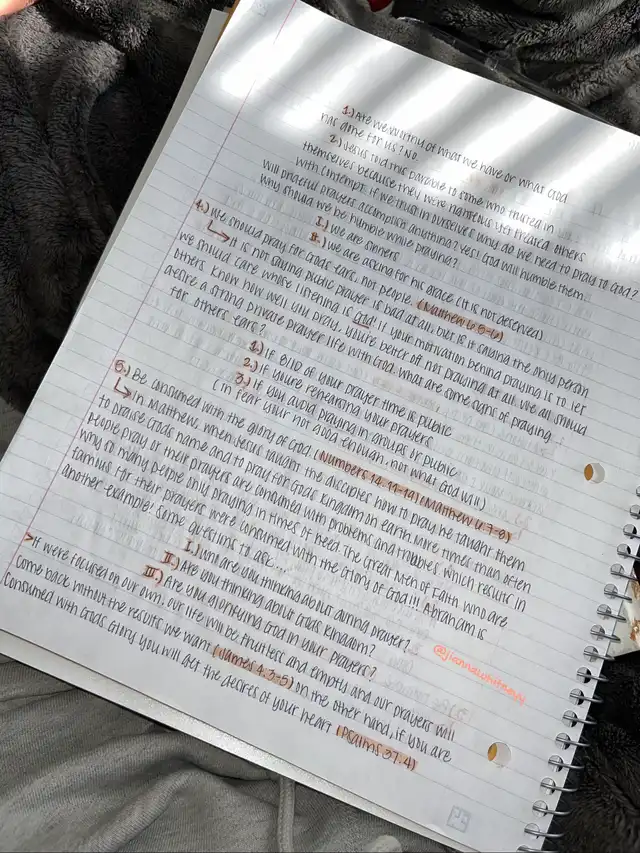 1.) Are we worthy of what we have or what God
has done for us? No.
2.) Jesus told this parable to some who trusted in
themselves because they were righteous yet treated others
with contempt. If we trust in ourselves why do we need to pray to God?
Will prideful prayers accomplish anything? Yes! God will humble them.
Why should we be humble while praying?
I.) We are sinners
II.) We are asking for his grace (It is not deserved)
4.) We should pray for Gods ears, not people. (Matthew 6:5-6)
↳ It is not saying public prayer is bad at all, but is it saying the only person
we should care whose listening is God! If your motivation behind praying is to let
others know how well you pray, youre better off not praying at all. We all should
desire a strong private prayer life with God. What are some signs of praying
for others ears?
1.) If 81D of your prayer time is public
2.) If youre rehearsing your prayers
3.) If you avoid praying in groups or public
(in fear your not good enough, not what God will)
5.) Be consumed with the glory of God. (Numbers 14:11-19) (Matthew 6:7-8)
↳ In Matthew, when Jesus taught the disciples how to pray he taught them
to praise Gods name and to pray for Gods Kingdom on earth. More times than often
people pray or their prayers are consumed with problems and troubles which results in
why so many people only praying in times of need. The Great Men of Faith who are
famous for their prayers were consumed with the Glory of God!!! Abraham is
another example! Some questions to ask...
I.) Who are you thinking about during prayer?
II.) Are you thinking about Gods kingdom?
III.) Are you glorifying God in your prayers?
> If were focused on our own, our life will be fruitless and empty and our prayers will
come back without the results we want (James 4:3-5) on the other hand, if you are
consumed with Gods Glory you will get the desires of your heart (Psalms 37:4)